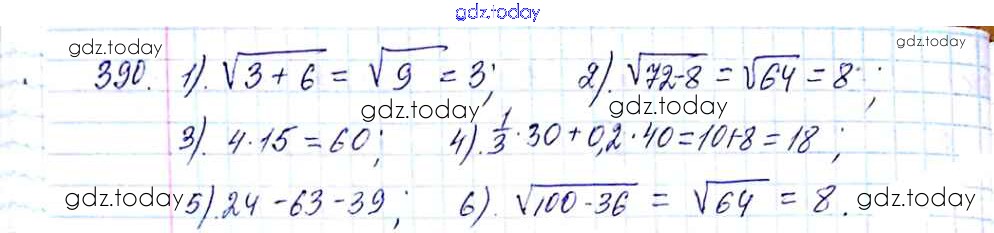 gdz.today
gdz.today gdz.today
390. 1). √3+6 = √9 = 3; 2). √72-8 = √64 = 8;
gdz.today gdz.today
3). 4·15 = 60; 4). 1/3·30+0,2·40=10+8=18;
gdz.today gdz.today gdz.today
5). 24-63-39; 6). √100-36 = √64 = 8.